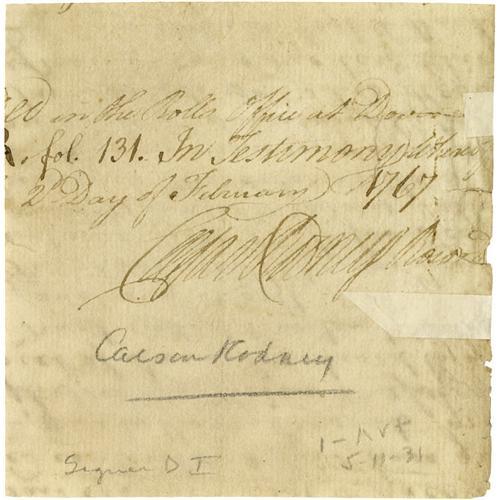 ed in the Rolls Office at Dover
R. fol. 131. In Testimony whereof
2d Day of February 1767
Caesar Rodney Record
Caesar Rodney
Signer D I
5-11-31